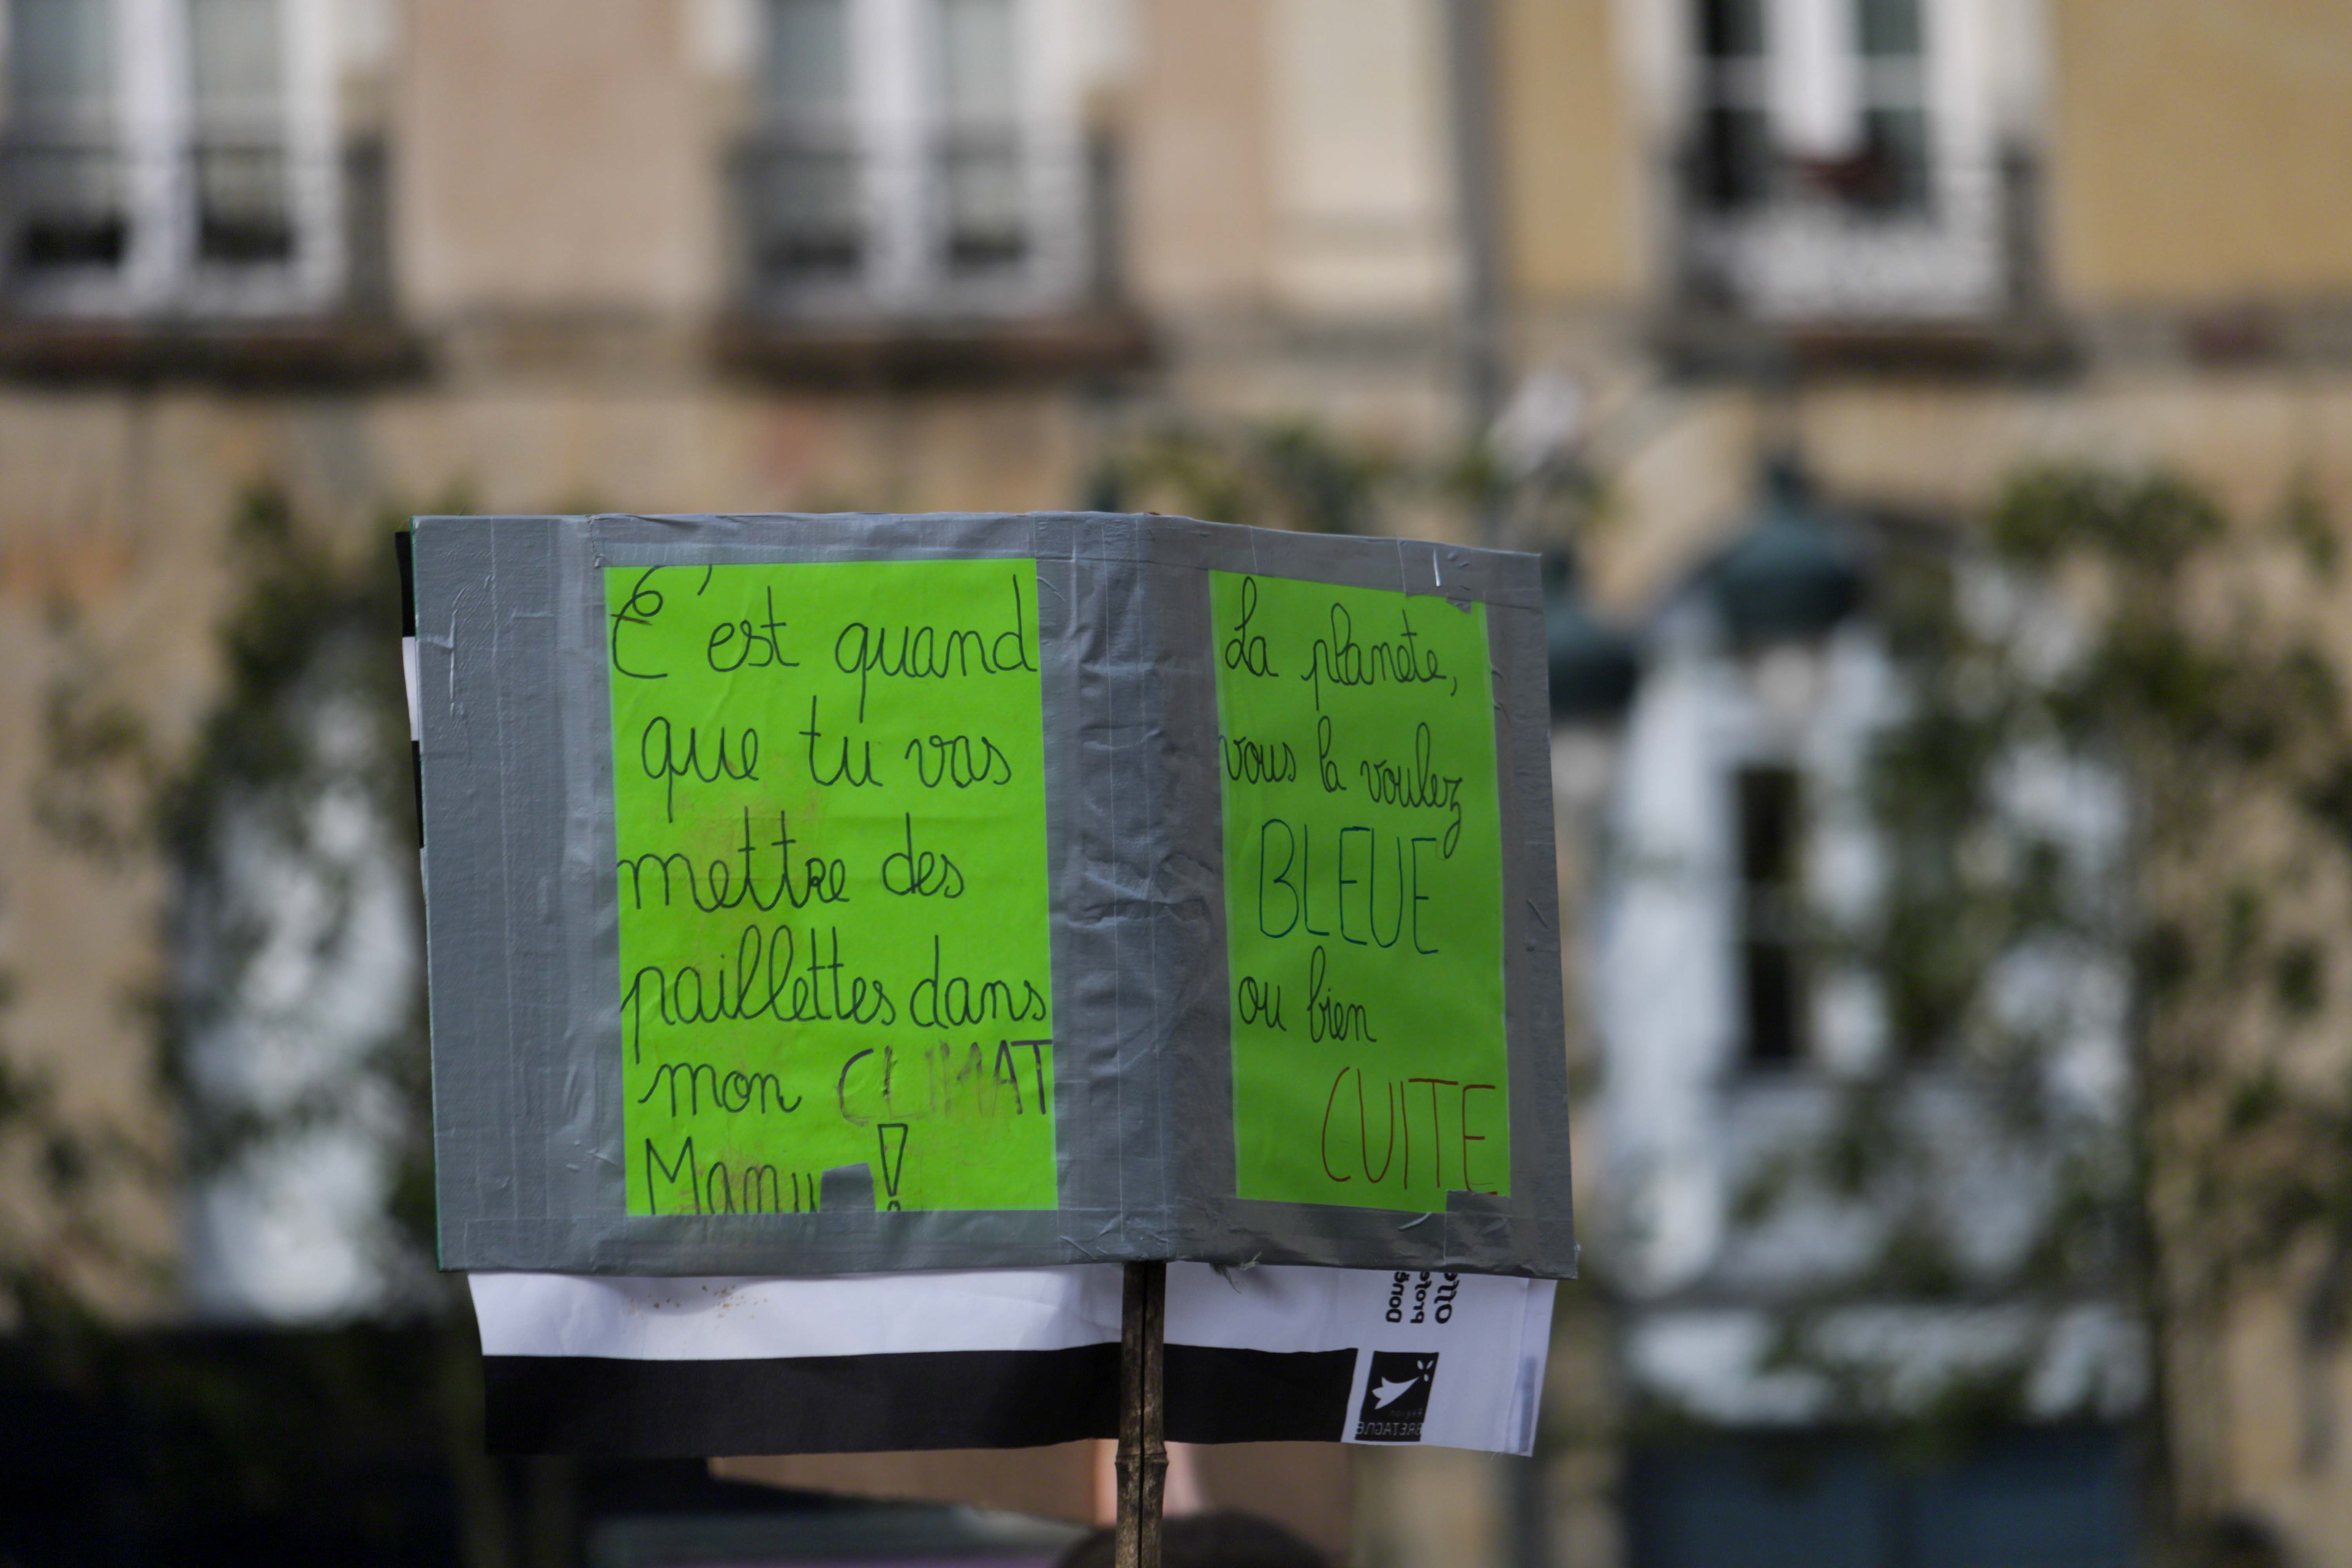 C'est quand
que tu vas
mettre des
paillettes dans
mon CLIMAT
Manu !
La planète,
vous la voulez
BLEUE
ou bien
CUITE
Région
BRETAGNE